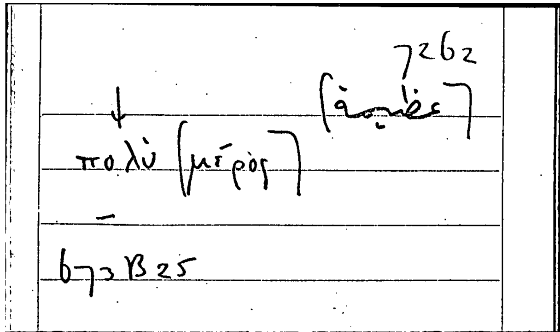 7262
πολὺ [μέρος]
673B25